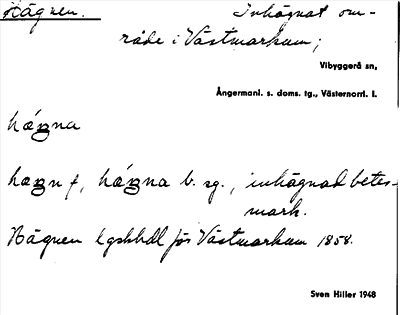 Hägnen.
Inhägnat om-
råde i Västmarkum;
Vibyggerå sn,
Ångermanl. s. doms. tg., Västernorrl. l.
hægn f, b. sg., inhägnad betes-
mark.
Hägnen för Västmarkum 1858.
Sven Hiller 1948